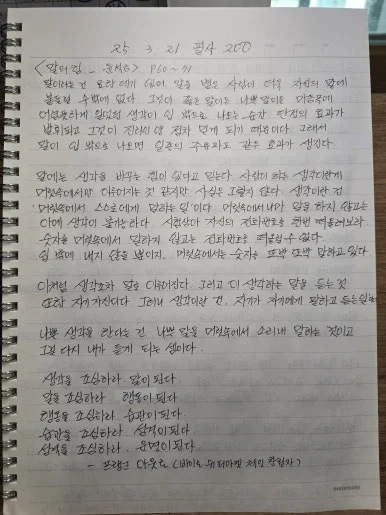 25. 3. 21 필사 200
<말의 힘 - 윤석금> P60~71
말이라는 건 묘한 데가 있어 말을 뱉은 사람이 더욱 자신의 말에
붙들릴 수밖에 없다. 그것이 좋은 말이든 나쁜 말이든 마음속에
어렴풋하게 있었던 생각이 입 밖으로 나오는 순간 단정의 효과가
발휘되고 그것이 진리인 양 점차 믿게 되기 때문이다. 그래서
말이 입 밖으로 나오면 일종의 주문과도 같은 효과가 생긴다.
말에는 생각을 바꾸는 힘이 있다고 믿는다. 사람이 하는 생각이란 게
머릿속에서만 이루어지는 것 같지만 사실은 그렇지 않다. 생각이란 건
머릿속에서 스스로에게 말하는 일이다. 머릿속에서나마 말을 하지 않고는
아예 생각이 불가능하다. 시험삼아 자신의 전화번호를 한번 떠올려보라.
숫자를 머릿속에서 말하지 않고는 전화번호를 떠올릴 수 없다.
입 밖에 내지 않을 뿐이지, 머릿속에서는 숫자를 또박 또박 말하고 있다.
이처럼 생각조차 말로 이루어진다. 그리고 이 생각하는 말을 듣는 것
또한 자기 자신이다. 그러니 생각이란 건, 자기가 자기에게 말하고 듣는 일이다
나쁜 생각을 한다는 건 나쁜 말을 머릿속에서 소리내 말하는 것이고
그걸 다시 내가 듣게 되는 셈이다.
생각을 조심하라. 말이 된다.
말을 조심하라. 행동이 된다.
행동을 조심하라. 습관이 된다.
습관을 조심하라. 성격이 된다.
성격을 조심하라. 운명이 된다.
- 프랭크 아웃로 (바이로 슈퍼마켓 체인 창립자)